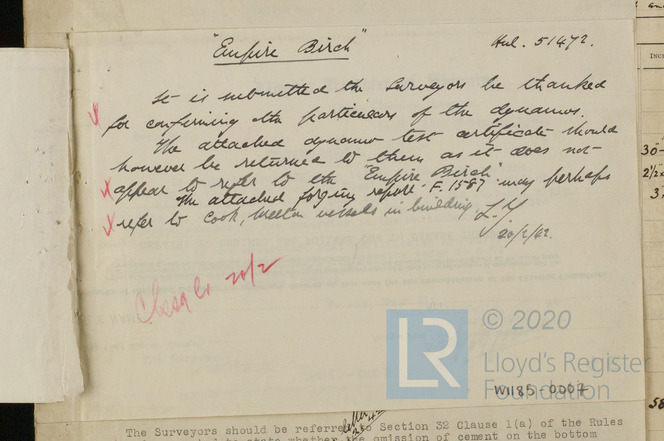 "Empire Birch" Hul. 51472.
It is submitted the Surveyors be thanked
for confirming the particulars of the dynamos.
The attached dynamo test certificate should
however be returned to them as it does not
appear to refer to the "Empire Birch".
The attached forging report F.1587 may perhaps
refer to Cook, Welton vessels in building
20/2/42.
20/2
LR
© 2020
Lloyd's Register
Foundation
W1185-0007
The Surveyors should be referred to Section 32 Clause 1(a) of the Rules
omission of cement on the bottom
30
2½
3
58